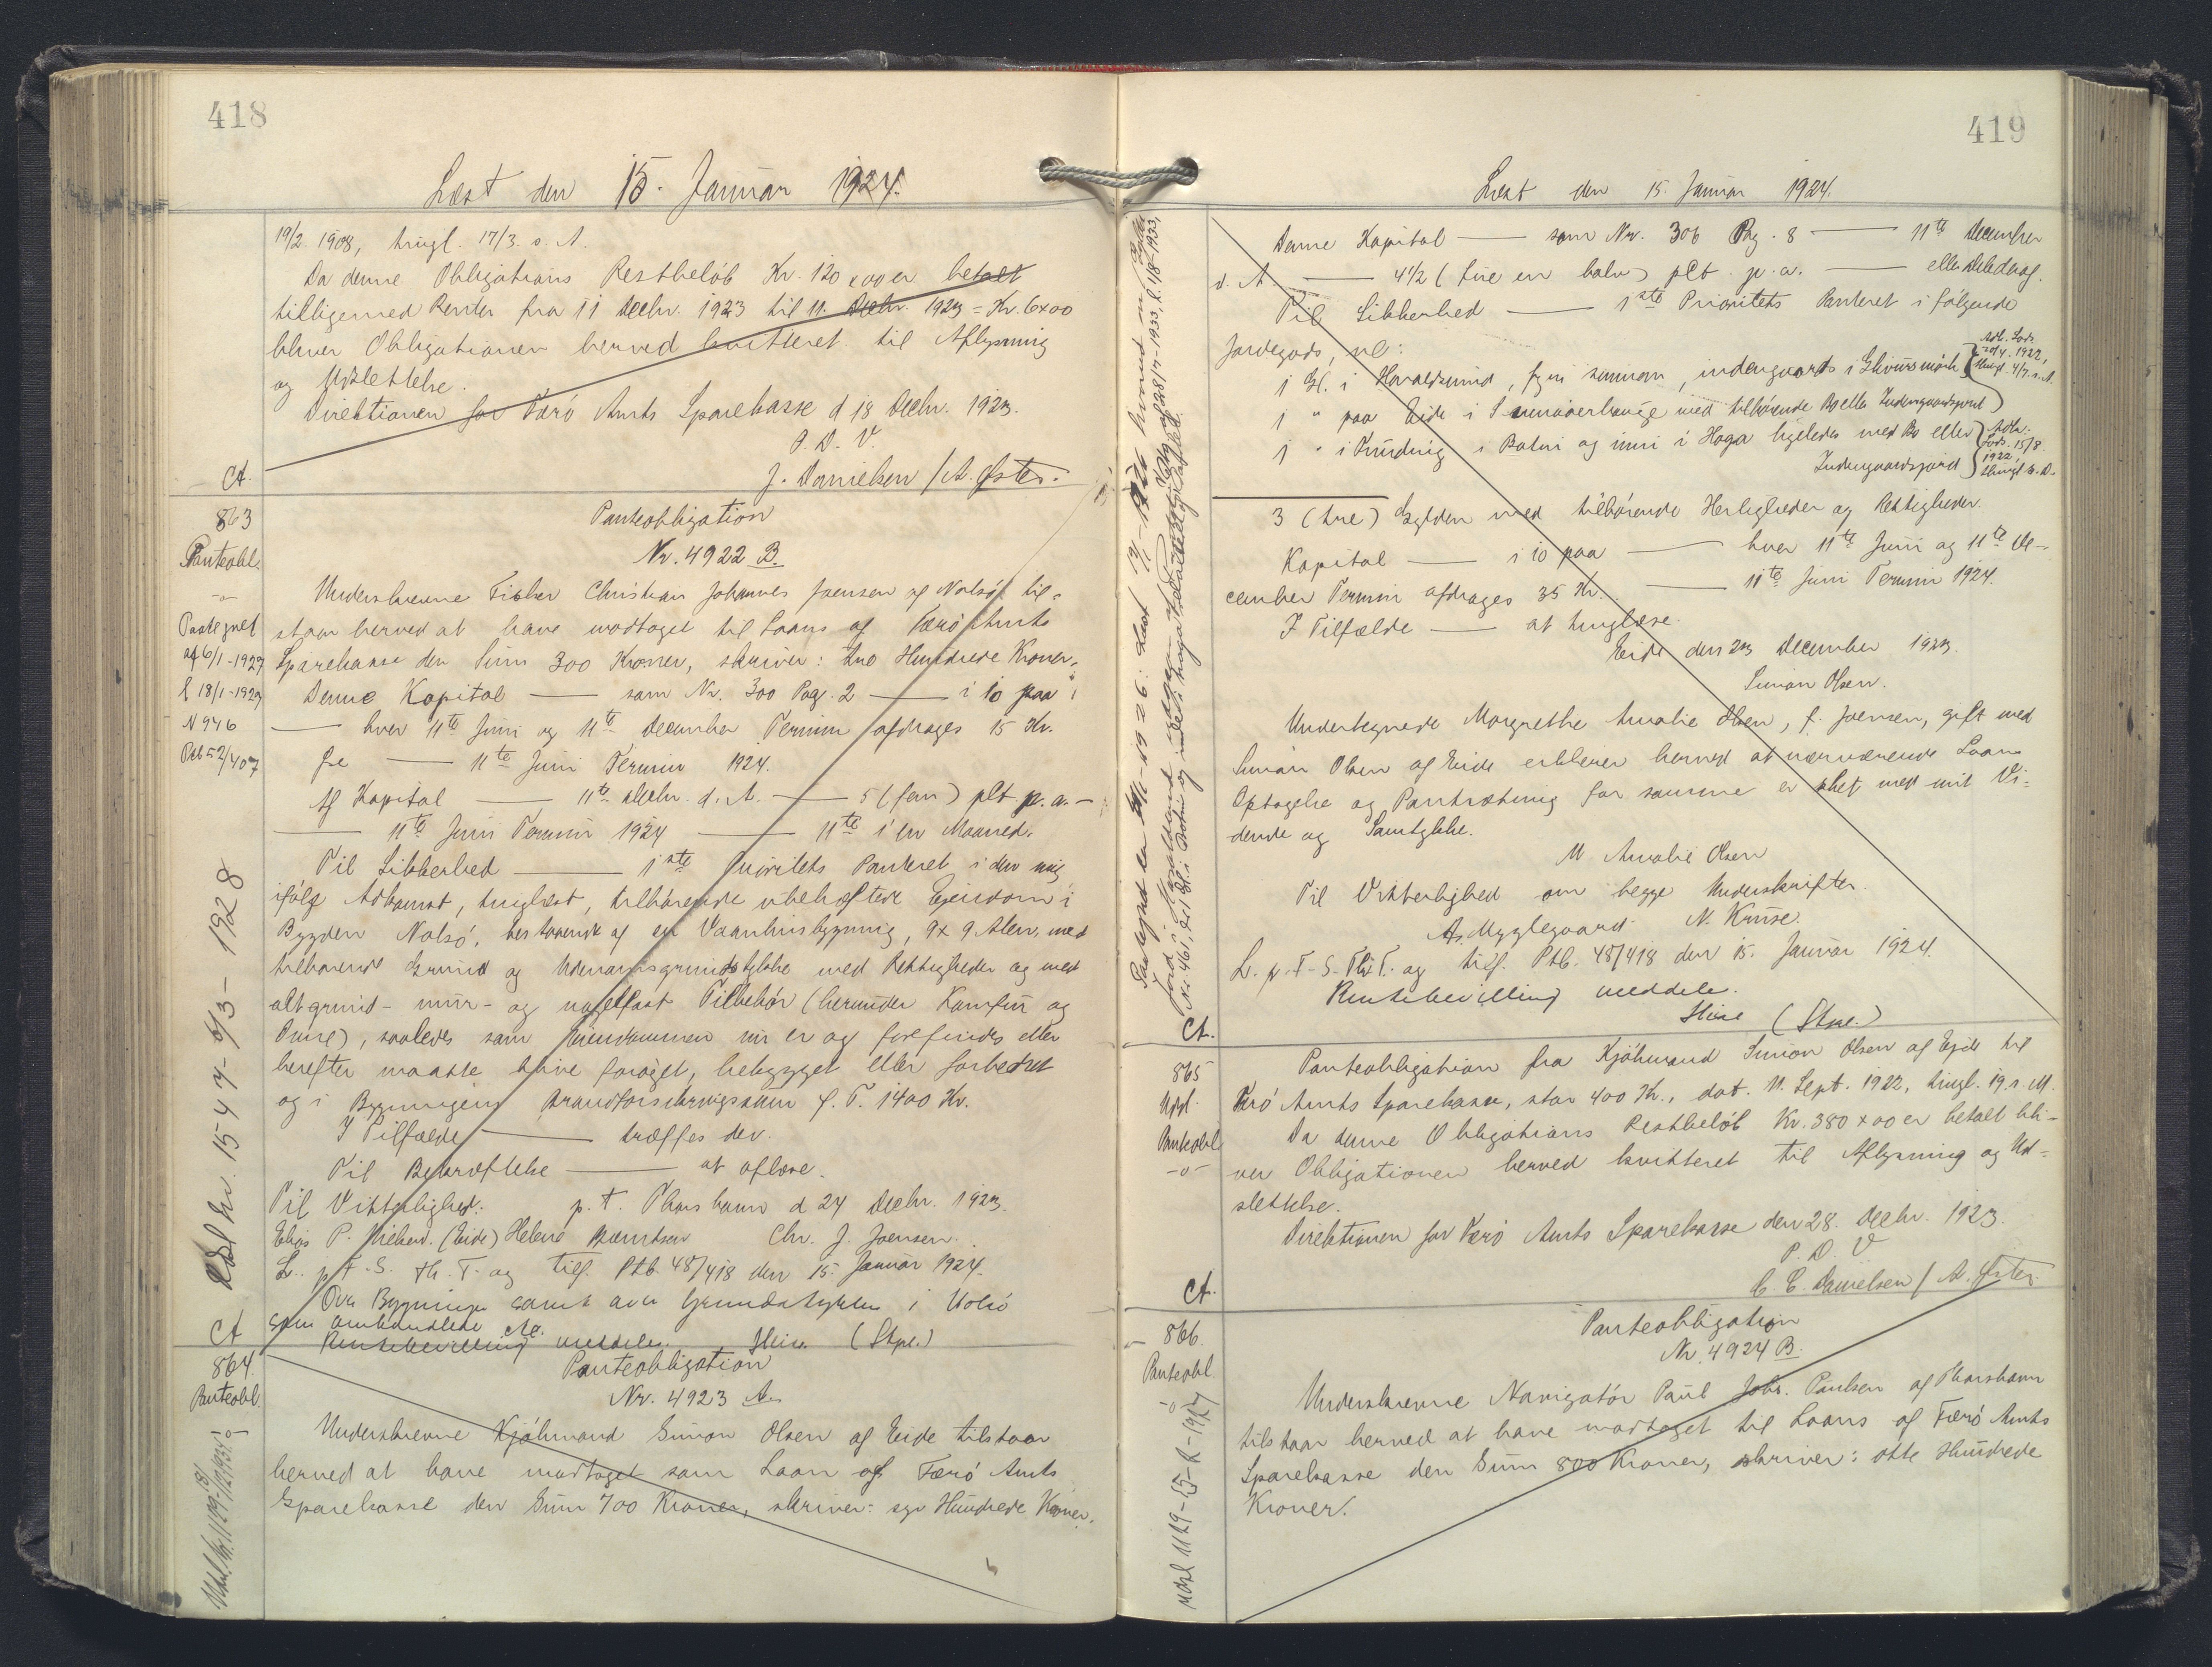 418
Læst den 15. Januar 1924.
19/2 1908, tingl. 17/3. s. A.
Da denne Obligations Restbeløb Kr. 120 x 00 er betalt
tilligemed Renter fra 11 Decbr. 1923 til 11. Decbr. 1923 = Kr. 6x00
bliver Obligationen herved kvitteret til Aflysning
og Udslettelse.
Direktionen for Færö Amts Sparekasse d 18 Decbr. 1923.
P. D. V.
J. Danielsen / A. Øster.
Ct.
863
Panteobl.
-o-
Paategnet
af 6/1-1927
l 18/1-1929
N 946
Ptb 52/407
Panteobligation
Nr. 4922 B.
Underskrevne Fisker Christian Johannes Joensen af Nolsö til-
staar herved at have modtaget til Laans af Færö Amts
Sparekasse den Sum 300 Kroner, skriver: tre Hundrede Kroner.
Denne Kapital — som Nr. 300 Pag. 2 — i 10 paa i
— hver 11te Juni og 11te December Termin afdrages 15 Kr.
fre — 11te Juni Termin 1924.
Af Kapital — 11te Decbr. d. A. — 5 (fem) pCt p. a. —
— 11te Juni Termin 1924 — 11te i en Maaned.
Til Sikkerhed — 1ste Prioritets Panteret i den mig
ifölge Adkomst, tinglæst, tilhörende ubehæftede Ejendom i
Bygden Nolsö, bestaaende af en Vaanhusbygning, 9 x 9 Alen, med
tilhörende Grund og Udenomsgrundstykke med Rettigheder og med
alt grund- mur- og nagelfast Tilbehör (herunder Komfur og
Ovne), saaledes som Ejendommen nu er og forefindes eller
herefter maatte blive foröget, bebygget eller forbedret
og i Bygningens Brandforsikringssum f. T. 1400 Kr.
I Tilfælde — træffes der.
Til Bekræftelse — at aflæse.
Til Vitterlighed: p. t. Thorshavn d 24 Decbr. 1923.
Elias P. Nielsen. (Eide) Helene Chr. J. Joensen.
L. p. F. S. Th. T. og tilf. Ptb. 48/418 den 15. Januar 1924.
Ovn Bygningen samt over Grundstykken i Nolsö
som ombundlede
Rentebevilling meddeles. Heise (Stpl.)
Udsl kr. 1547-6/3-1928
Ct
864.
Panteobl.
-o-
Panteobligation
Nr. 4923 A.
Underskrevne Kjöbmand Simon Olsen af Eide tilstaar
herved at have modtaget som Laan af Færö Amts
Sparekasse den Sum 700 Kroner, skriver: syv Hundrede Kroner.
419
Læst den 15. Januar 1924.
Denne Kapital — som Nr. 306 Pag. 8 — 11te December
d. A — 4 1/2 (fire en halv) pCt. p. a. — eller Deldrag.
Til Sikkerhed — 1ste Prioritets Panteret i fölgende
Jordegods, nl:
1 Gl. i Haraldsund, fyri sunnan, indengaards i
1 " paa Eide i med tilhörende Bo eller Indengaardsjord
1 " i Funding i Botni og inni i Haga ligeledes med Bo eller
Indengaardsjord
Adk. Sods.
20/4. 1922,
tingl. 4/7. s. A.
Adk.
Sods. 15/8
1922
tingl. s. D.
3 (tre) Gylden med tilhörende Herligheder og Rettigheder.
Kapital — i 10 paa — hver 11te Juni og 11te De-
cember Termin afdrages 35 Kr. — 11te Juni Termin 1924.
I Tilfælde — at tinglæse.
Eide den 23 December 1923.
Simon Olsen.
Undertegnede Margrethe Amalie Olsen, f. Joensen, gift med
Simon Olsen af Eide erklærer herved at nærværende Laans
Optagelse og Pantsætning for samme er sket med mit Vi-
dende og Samtykke.
M Amalie Olsen
Til Vitterlighed om begge Underskrifter.
As. Mygglegaard. N. Kruse.
L. p. F. S. Th. T. og tilf. Ptb. 48/418 den 15. Januar 1924.
Rentebevilling meddeles.
Heise (Stpl.)
Ct.
865
Udsl.
Panteobl
-o-
Panteobligation fra Kjöbmand Simon Olsen af Ejde til
Færö Amts Sparekasse, stor 400 Kr., dat. 11. Sept. 1922, tingl. 19. s. M.
Da denne Obligations Restbeløb Kr. 380 x 00 er betalt bli-
ver Obligationen herved kvitteret til Aflysning og Ud-
slettelse.
Direktionen for Færö Amts Sparekasse den 28. Decbr. 1923.
P. D. V
C. C. Danielsen / A. Øster
Ct.
866.
Panteobl.
-o-
Udsl 1129-15-2-1927
Panteobligation
Nr. 4924 B.
Underskrevne Navigatör Paul Johs. Poulsen af Thorshavn
tilstaar herved at have modtaget til Laans af Færö Amts
Sparekasse den Sum 800 Kroner, skriver: otte Hundrede
Kroner.